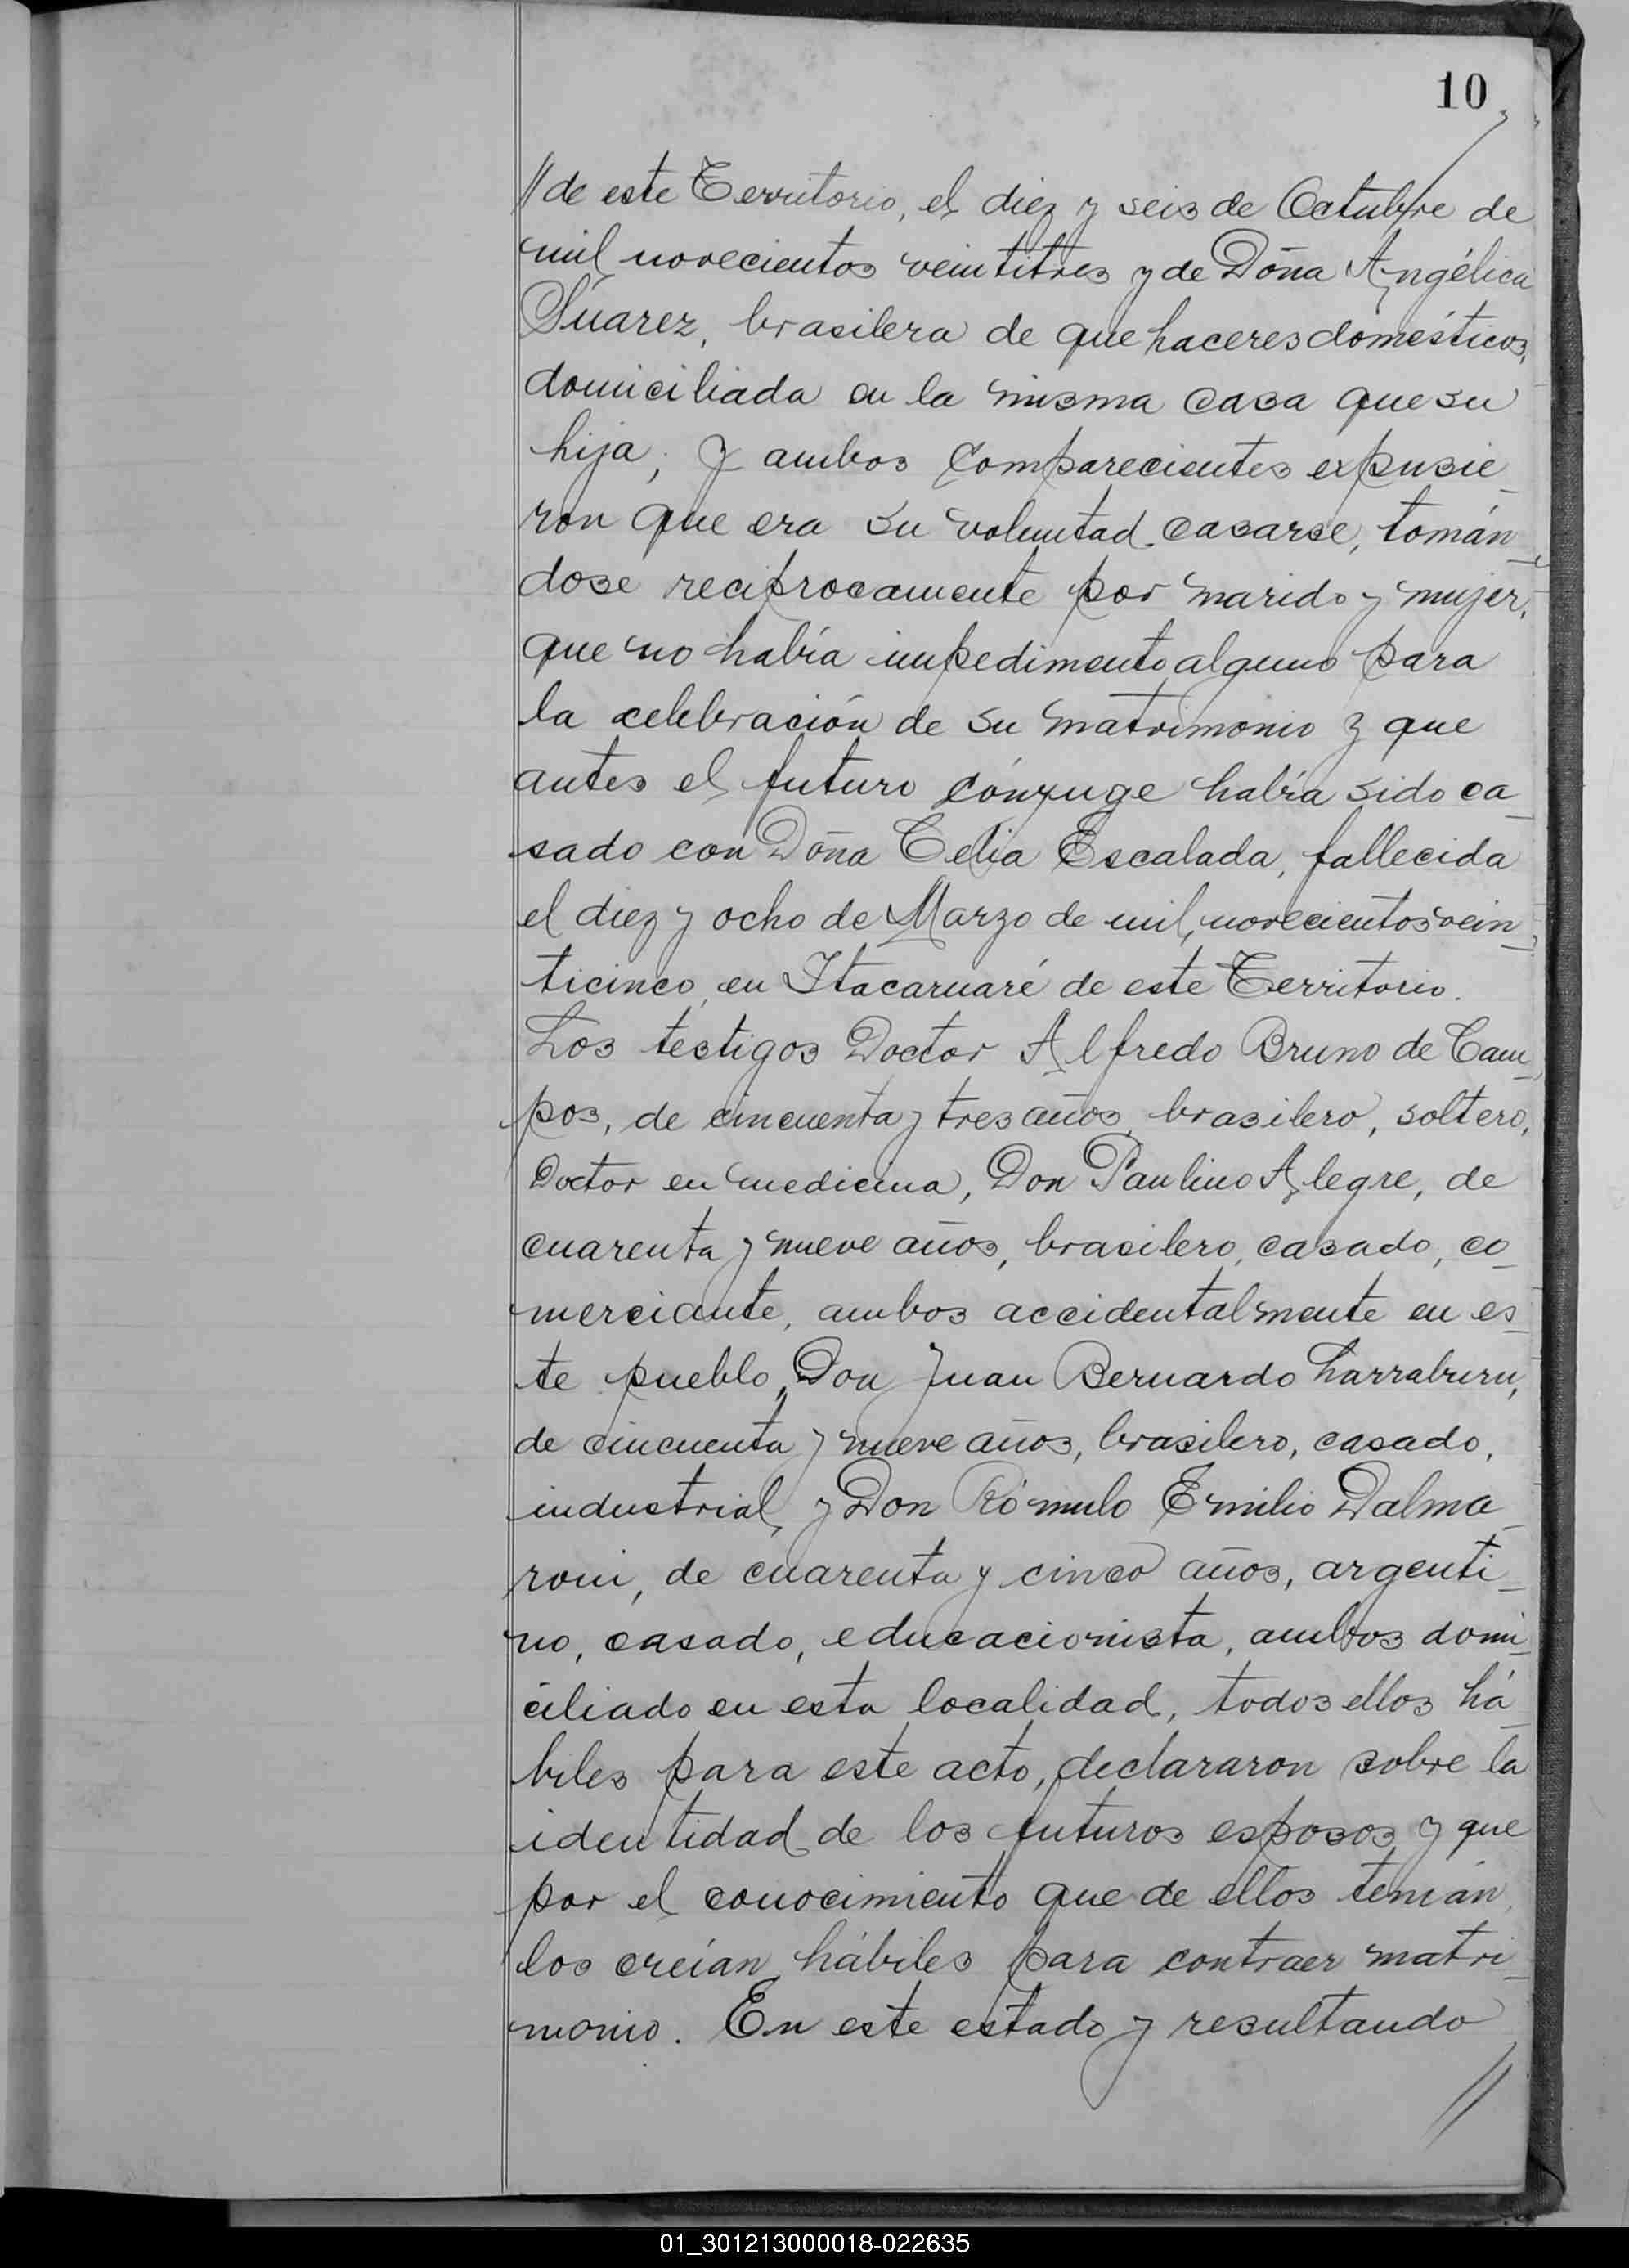 10
//de este Territorio, el diez y seis de Octubre de
mil novecientos veintitres y de Doña Angélica
Súarez, brasilera de que haceres domésticos,
domiciliada en la misma casa que su
hija; y ambos comparecientes expusie_
ron que era su voluntad casarse, tomán_
dose reciprocamente por marido y mujer,
que no había impedimento alguno para
la celebración de su matrimonio y que
antes el futuro cónyuge había sido ca_
sado con Doña Celia Escalada, fallecida
el diez y ocho de Marzo de mil novecientos vein_
ticinco, en Itacaruaré de este Territorio.
Los testigos Doctor Alfredo Bruno de Cam_
pos, de cincuenta y tres años, brasilero, soltero,
Doctor en medicina, Don Paulino Alegre, de
cuarenta y nueve años, brasilero, casado, co_
merciante, ambos accidentalmente en es_
te pueblo, Don Juan Bernardo Larraburu,
de cincuenta y nueve años, brasilero, casado,
industrial, y Don Rómulo Emilio Dalma_
roni, de cuarenta y cinco años, argenti_
no, casado, educacionista, ambos domi_
ciliado en esta localidad, todos ellos há_
biles para este acto, declararon sobre la
identidad de los futuros esposos y que
por el conocimiento que de ellos tenían,
los creían hábiles para contraer matri_
monio. En este estado y resultando
//
01_301213000018-022635